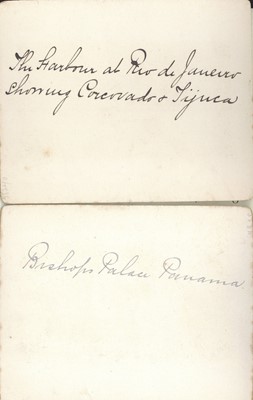 The Harbour at Rio de Janeiro
showing Corcovado & Tijuca
Bishops Palace Panama